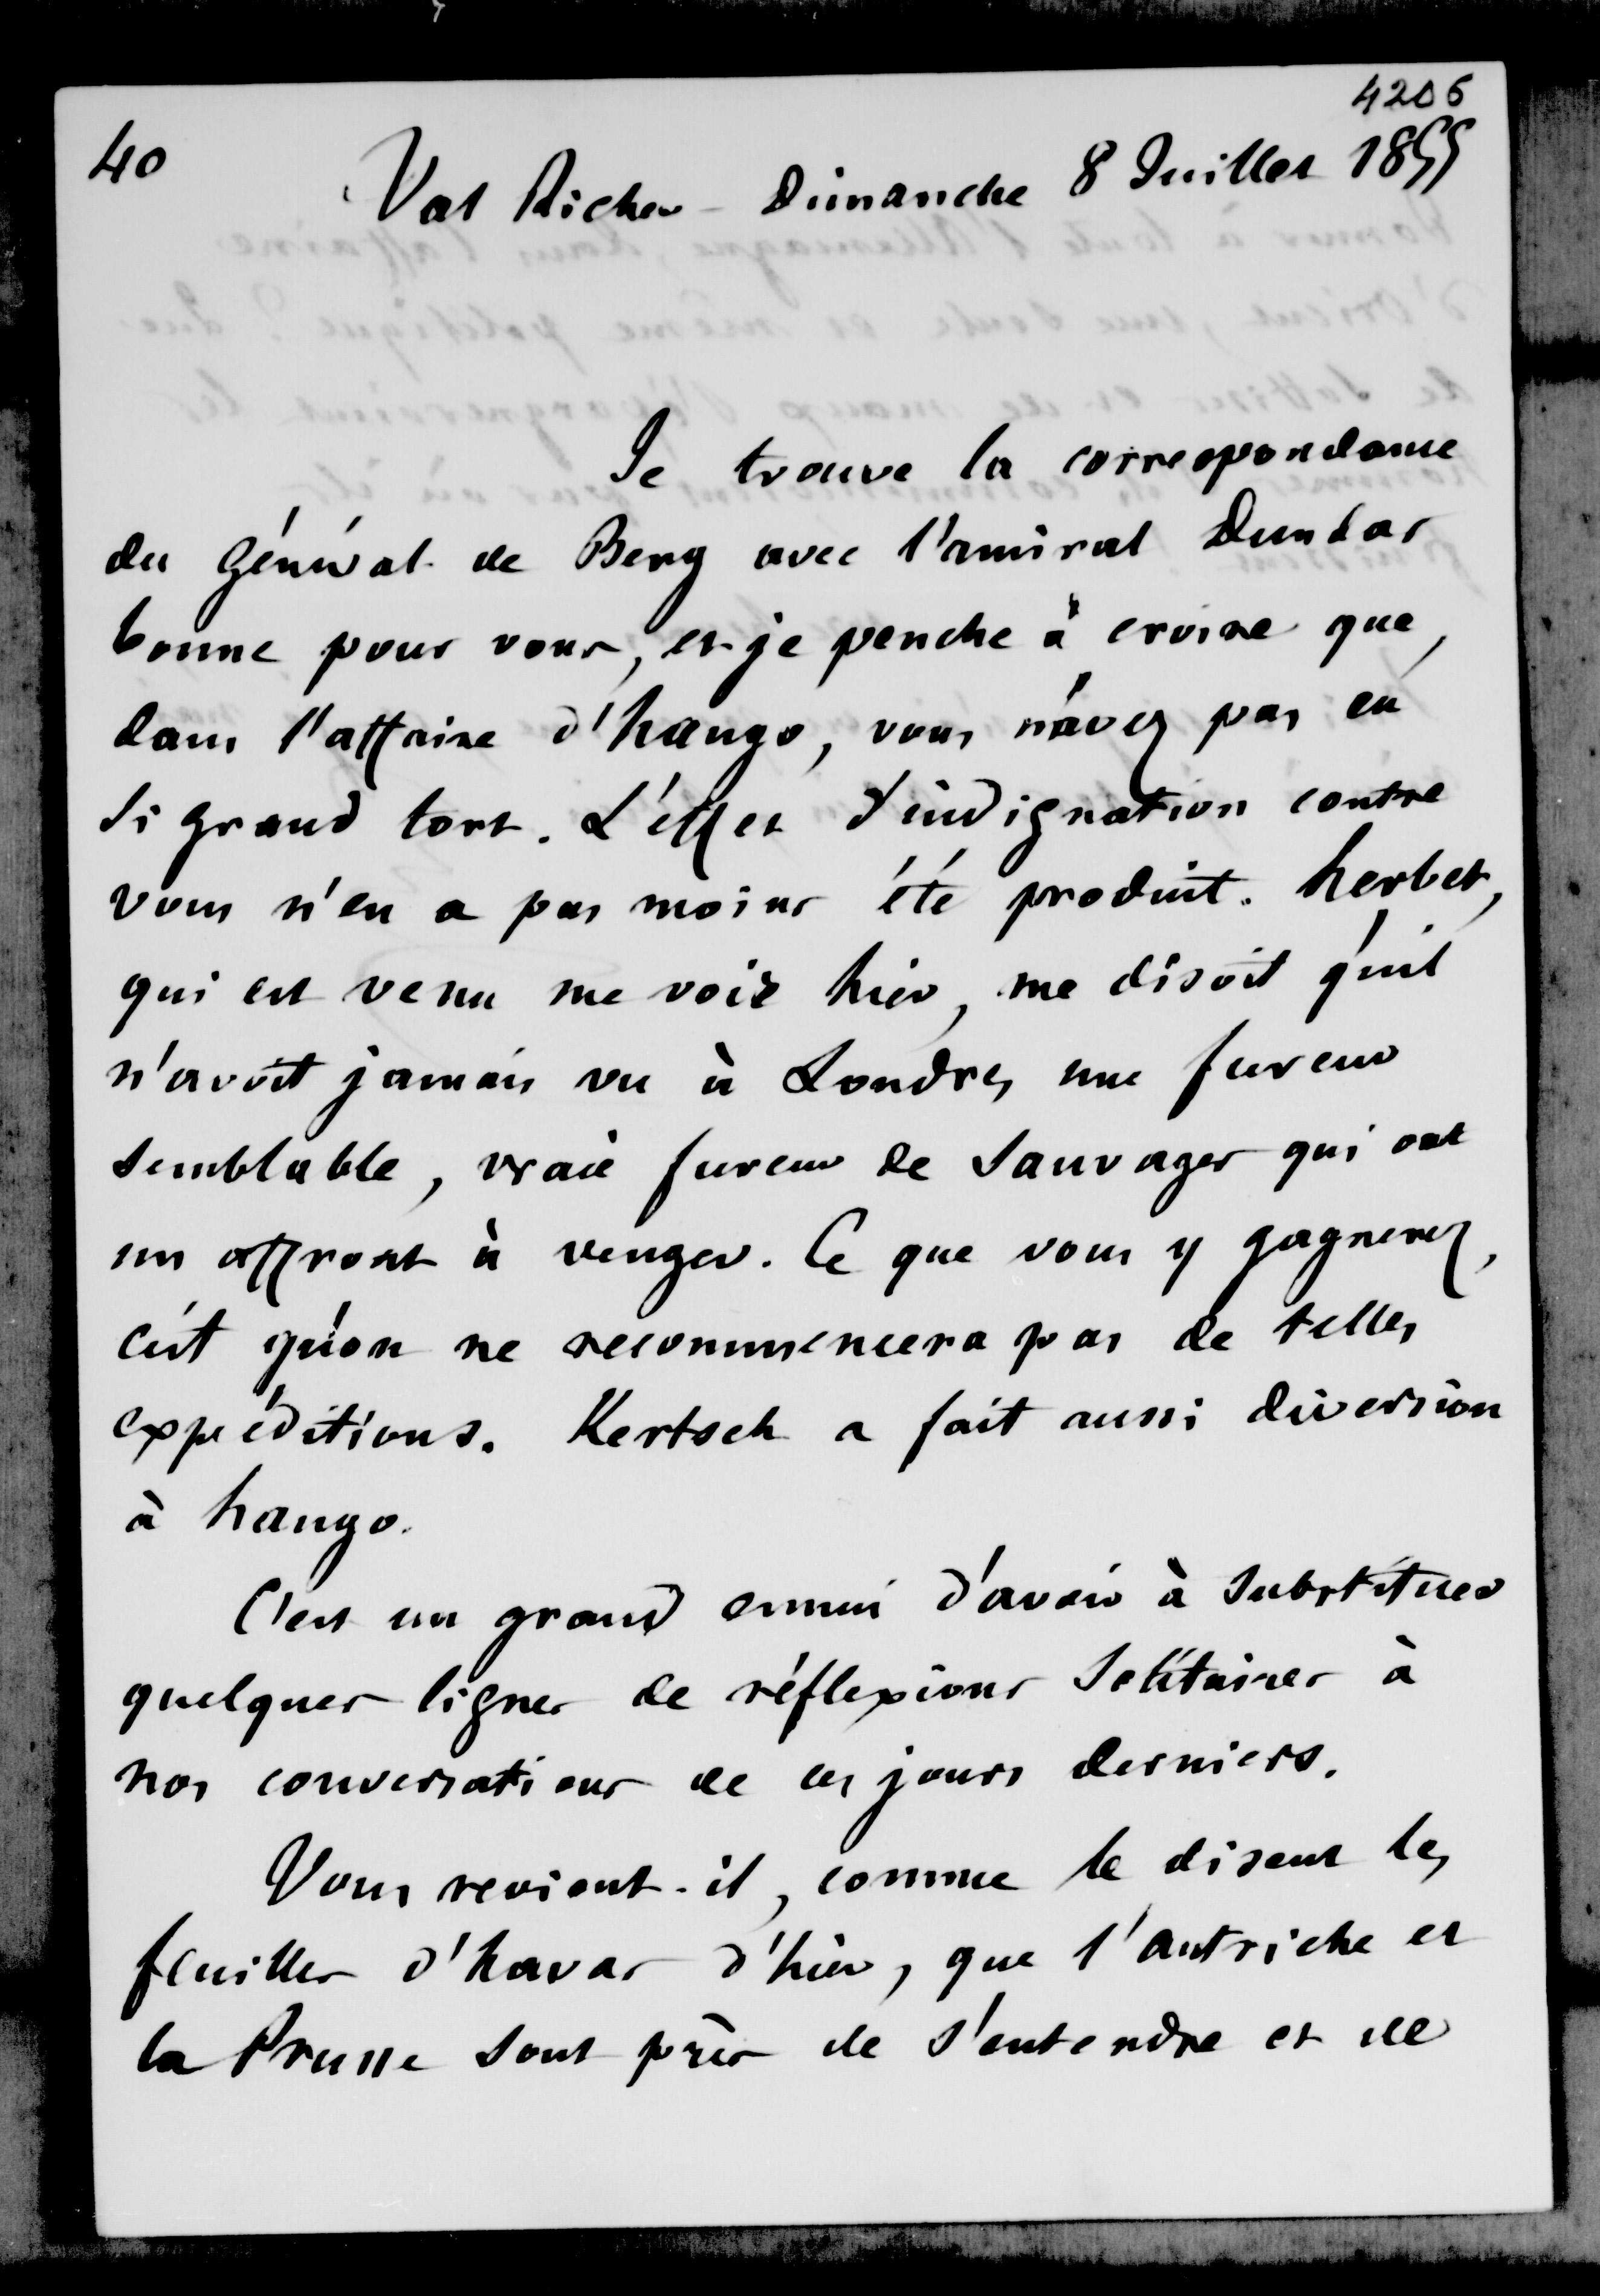 4206
40
Val Richer - Dimanche 8 Juillet 1855
Je trouve la correspondance
du Général de Berg avec l'amiral Dundas
bonne pour vous, et je penche à croire que,
dans l'affaire d'hango, vous n'avez pas eu
si grand tort. L'effet d'indignation contre
vous n'en a pas moins été produit. herbet,
qui est venu me voir hier, me disoit qu'il
n'avoit jamais vu à Londres une fureur
semblable, vraie fureur de Sauvages qui ont
un affront à venger. Ce que vous y gagnerez,
c'est qu'on ne recommencera pas de telles
expéditions. Kertsch a fait aussi diversion
à hango.
C'est un grand ennui d'avoir à substituer
quelques lignes de réflexions Solitaires à
nos conversations de ces jours derniers.
Vous revient-il, comme le disent les
feuilles d'havas d'hier, que l'autriche et
la Prusse sont près de s'entendre et de